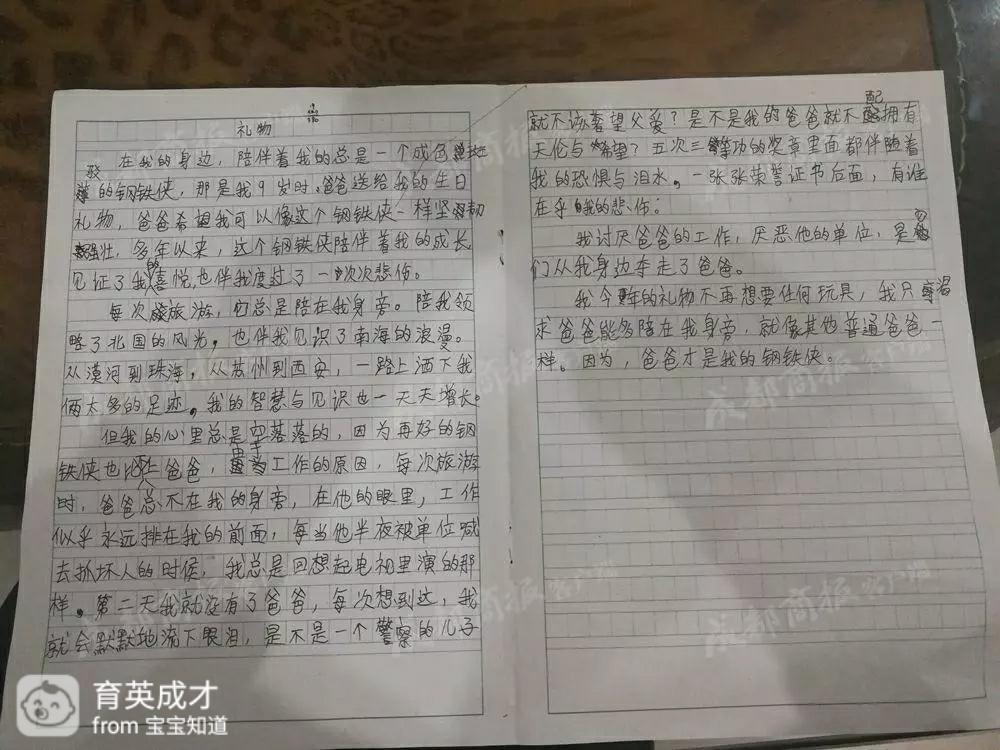 礼物
在我的身边，陪伴着我的总是一个成色
驳的钢铁侠，那是我9岁时爸爸送给我的生日
礼物，爸爸希望我可以像这个钢铁侠一样坚韧
强壮，多年以来，这个钢铁侠陪伴着我的成长
见证了我的喜悦，也伴我度过了一次次悲伤。
每次旅游，它总是陪在我身旁。陪我领
略了北国的风光，也伴我见识了南海的浪漫。
从漠河到珠海，从苏州到西安，一路上洒下我
俩太多的足迹，我的智慧与见识也一天天增长。
但我的心里总是空落落的，因为再好的钢
铁侠也比不上爸爸，由于工作的原因，每次旅游
时，爸爸总不在我的身旁，在他的眼里，工作
似乎永远排在我的前面，每当他半夜被单位喊
去抓坏人的时候，我总是回想起电视里演的那
样。第二天我就没有了爸爸，每次想到这，我
就会默默地流下眼泪，是不是一个警察的儿子
就不该奢望父爱？是不是我的爸爸就不配拥有
天伦与希望？五次三等功的奖章里面都伴随着
我的恐惧与泪水。一张张荣誉证书后面，有谁
在乎我的悲伤。
我讨厌爸爸的工作，厌恶他的单位，是他
们从我身边夺走了爸爸。
我今年的礼物不再想要任何玩具，我只渴
求爸爸能多陪在我身旁，就像其他普通爸爸一
样。因为，爸爸才是我的钢铁侠。
成都商报客户端
成都商报客户端
育英成才
from 宝宝知道